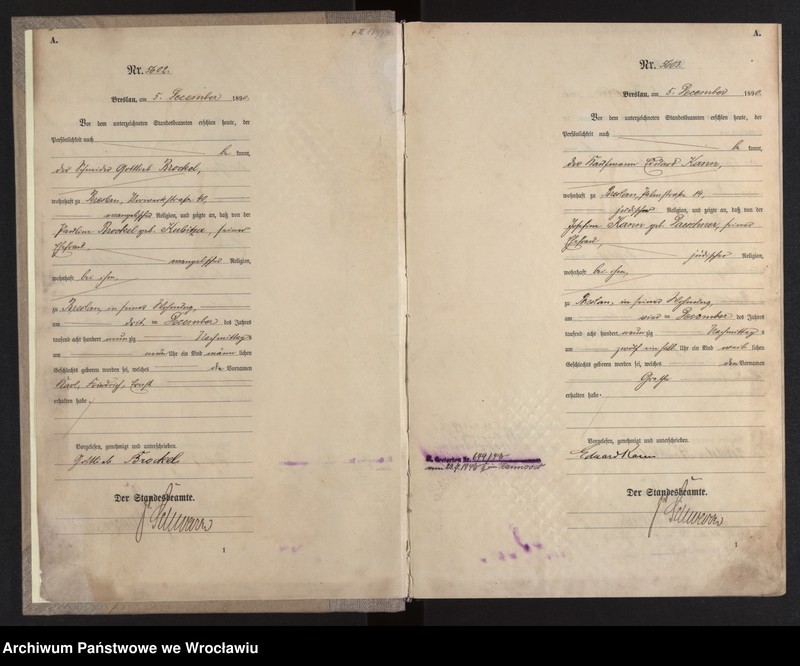 A.
Nr. 5602.
Breslau, am 5. December 1890.
Vor dem unterzeichneten Standesbeamten erschien heute, der
Persönlichkeit nach
kannt,
der Schmied Gottlieb Brockel,
wohnhaft zu Breslau, 40,
evangelischer Religion, und zeigte an, daß von der
Pauline Brockel geb. Kubitza, seiner
Ehefrau,
evangelischer Religion,
wohnhaft bei ihm,
zu Breslau, in seiner Wohnung,
am December des Jahres
tausend acht hundert neunzig Nachmittags
um neun Uhr ein Kind männlichen
Geschlechts geboren worden sei, welches die Vornamen
Karl, Friedrich, Ernst
erhalten habe.
Vorgelesen, genehmigt und unterschrieben.
Gottlieb Brockel
Der Standesbeamte.
1
A.
Nr. 5603.
Breslau, am 5. December 1890.
Vor dem unterzeichneten Standesbeamten erschien heute, der
Persönlichkeit nach
kannt,
der Kaufmann Eduard Kann,
wohnhaft zu Breslau, 14,
jüdischer Religion, und zeigte an, daß von der
Kann geb. seiner
Ehefrau,
jüdischer Religion,
wohnhaft bei ihm,
zu Breslau, in seiner Wohnung,
am December des Jahres
tausend acht hundert neunzig Nachmittags
um Uhr ein Kind weiblichen
Geschlechts geboren worden sei, welches den Vornamen
Grethe
erhalten habe.
Vorgelesen, genehmigt und unterschrieben.
Eduard Kann
Der Standesbeamte.
1
Archiwum Państwowe we Wrocławiu